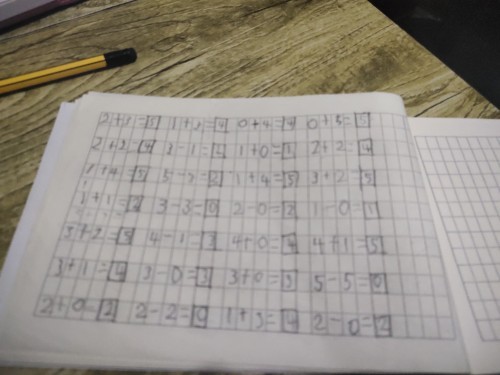 2+3=5 1+3=4 0+4=4 0+5=5
1+0=1 2+2=4
1+4=5 1+4=5 3+2=5
1+1=2 3-3=0 2-0=2 1-0=1
3+2=5 4-1=3 4+0=4 4+1=5
3+1=4 3-0=3 3+0=3 5-5=0
2+0=2 2-2=0 1+3=4 2-0=2